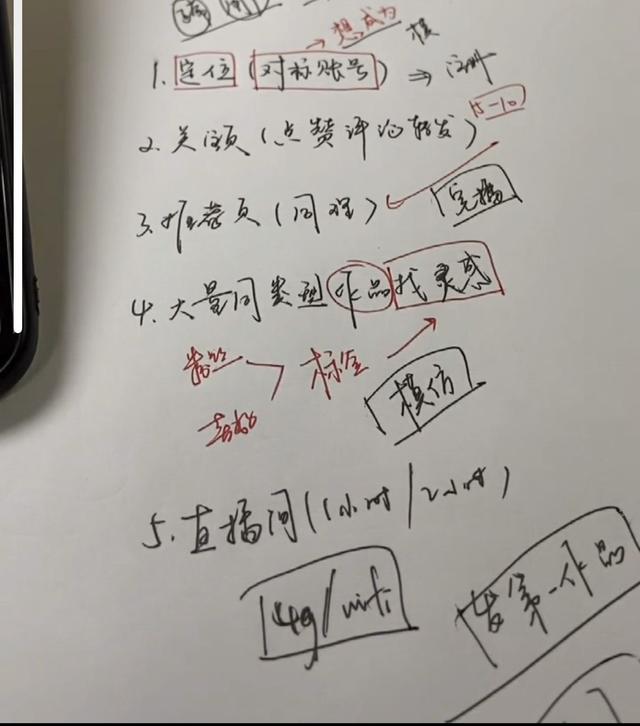 想成为
1. 定位 (对标账号) ⇒ 注册
15-10
2. 关注页 (点赞评论转发)
3. 推荐页 (同频)
完播
4. 大量同类型作品找灵感
粉丝
标签
模仿
5. 直播间 (1小时/2小时)
4g/wifi
发第一作品